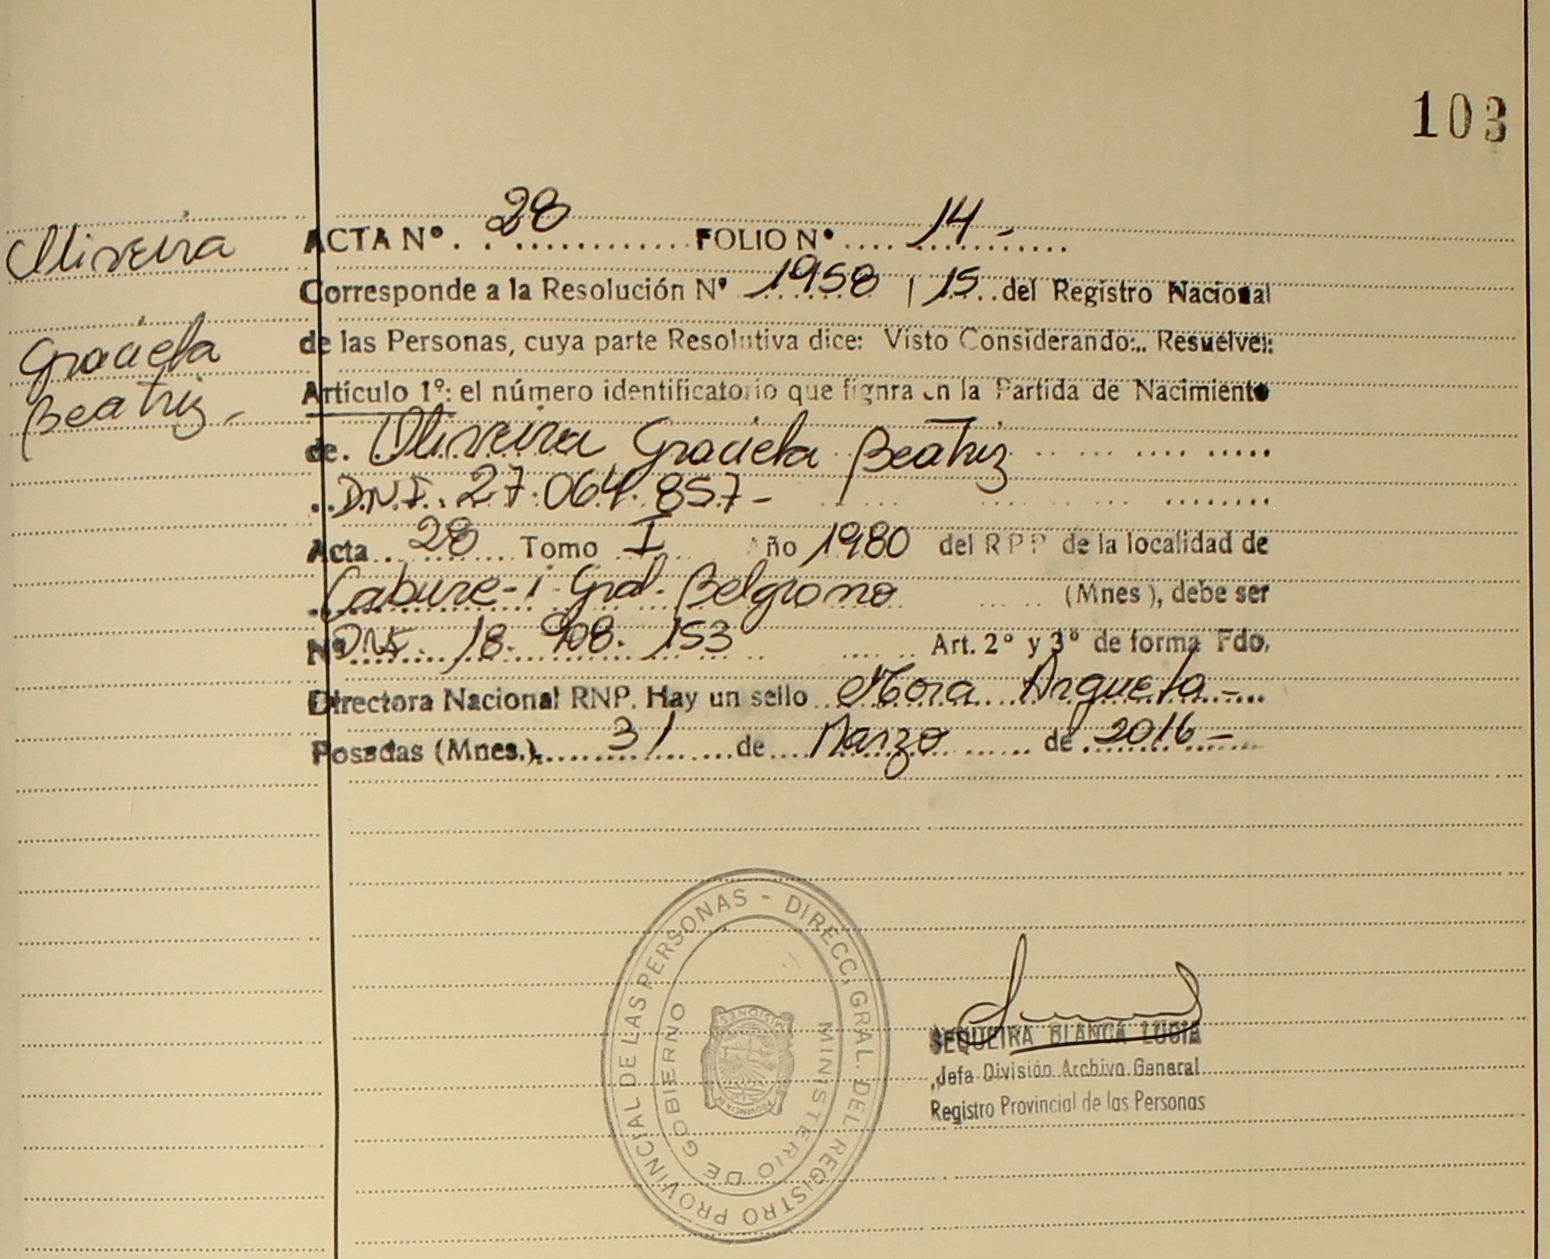 103
Oliveira
Graciela
Beatriz.-
ACTA Nº. 28 FOLIO Nº 14-
Corresponde a la Resolución Nº 1958 / 15 del Registro Nacional
de las Personas, cuya parte Resolutiva dice: Visto Considerando:.. Resuelve:
Artículo 1º: el número identificatorio que figura en la Partida de Nacimiento
de. Oliveira Graciela Beatriz
D.N.I. 27.064.857-
Acta 28 Tomo I Año 1980 del RPP de la localidad de
Cabure-i Gral. Belgrano (Mnes), debe ser
Nº DNI. 18. 908. 153 Art. 2º y 3º de forma Fdo.
Directora Nacional RNP. Hay un sello Mora Argueta.-
Posadas (Mnes.), 31 de Marzo de 2016-
DIRECC. GRAL. DEL REGISTRO PROVINCIAL DE LAS PERSONAS -
MINISTERIO DE GOBIERNO
PROVINCIA MISIONES
SEQUEIRA BLANCA LUCIA
Jefa División Archivo General
Registro Provincial de las Personas